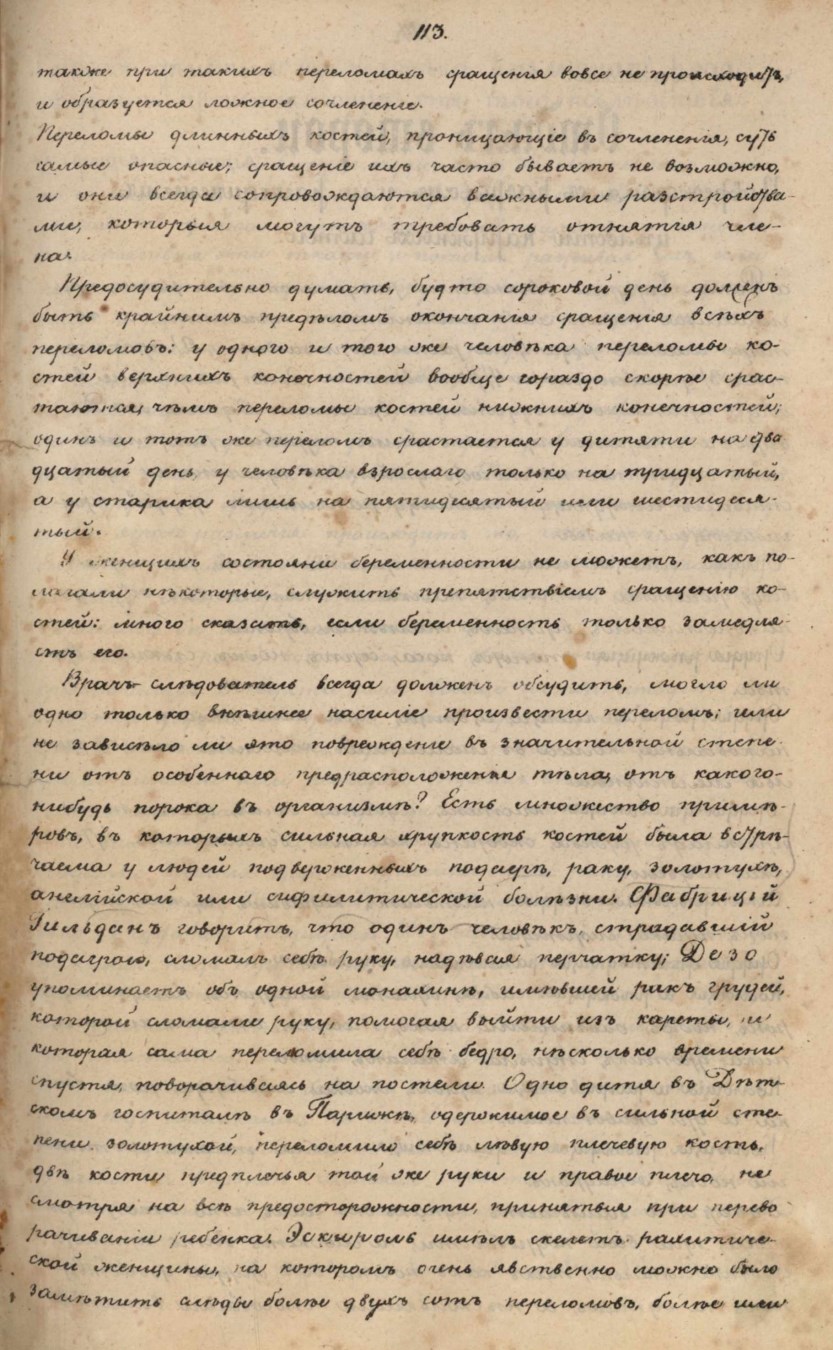 113.
также при такихъ переломахъ сращенія вовсе не происходитъ,
и образуется ложное сочлененіе.
Переломы длинныхъ костей, проницающіе въ сочлененія, суть
самые опасные; сращеніе ихъ часто бываетъ не возможно,
и они всегда сопровождаются важными разстройства-
ми, которыя могутъ требовать отнятія чле-
на.
Предосудительно думать, будто сороковой день долженъ
быть крайнимъ предѣломъ окончанія сращенія всѣхъ
переломовъ: у одного и того же человѣка переломы ко-
стей верхнихъ конечностей вообще гораздо скорѣе срас-
таются, чѣмъ переломы костей нижнихъ конечностей;
одинъ и тотъ же переломъ срастается у дитяти на два
дцатый день у человѣка взрослаго только на тридцатый,
а у старика лишь на пятидесятый или шестидеся-
тый.
У женщинъ состояніе беременности не можетъ, какъ по-
лагали нѣкоторые, служить препятствіемъ сращенію ко-
стей: много сказать, если беременность только замедля-
етъ его.
Врачъ-слѣдователь всегда долженъ обсудить, могло ли
одно только внѣшнее насиліе произвести переломъ; или
не зависѣло ли это поврежденіе въ значительной степе
ни отъ особеннаго предрасположенія тѣла, отъ какого-
нибудь порока въ организмѣ? Есть множество примѣ-
ровъ, въ которыхъ сильная хрупкость костей была встрѣ-
чаема у людей подверженныхъ подагрѣ, раку, золотухѣ,
англійской или сифилитической болѣзни. Фабрицій
Гильданъ говоритъ, что одинъ человѣкъ, страдавшій
подагрою, сломалъ себѣ руку, надѣвая перчатку; Дезо
упоминаетъ объ одной монахинѣ, имѣвшей ракъ грудей,
которой сломали руку, помогая выйти изъ кареты, и
которая сама переломила себѣ бедро, нѣсколько времени
спустя, поворачиваясь на постели. Одно дитя въ Дѣт-
скомъ госпиталѣ въ Парижѣ, одержимое въ сильной сте-
пени золотухой, переломило себѣ лѣвую плечевую кость,
двѣ кости предплечья той же руки и правое плечо, не
смотря на всѣ предосторожности, принятыя при перево
рачиваніи ребенка. Эскироль имѣлъ скелетъ рахитиче-
ской женщины, на которомъ очень явственно можно было
замѣтить слѣды болѣе двухъ сотъ переломовъ, болѣе или